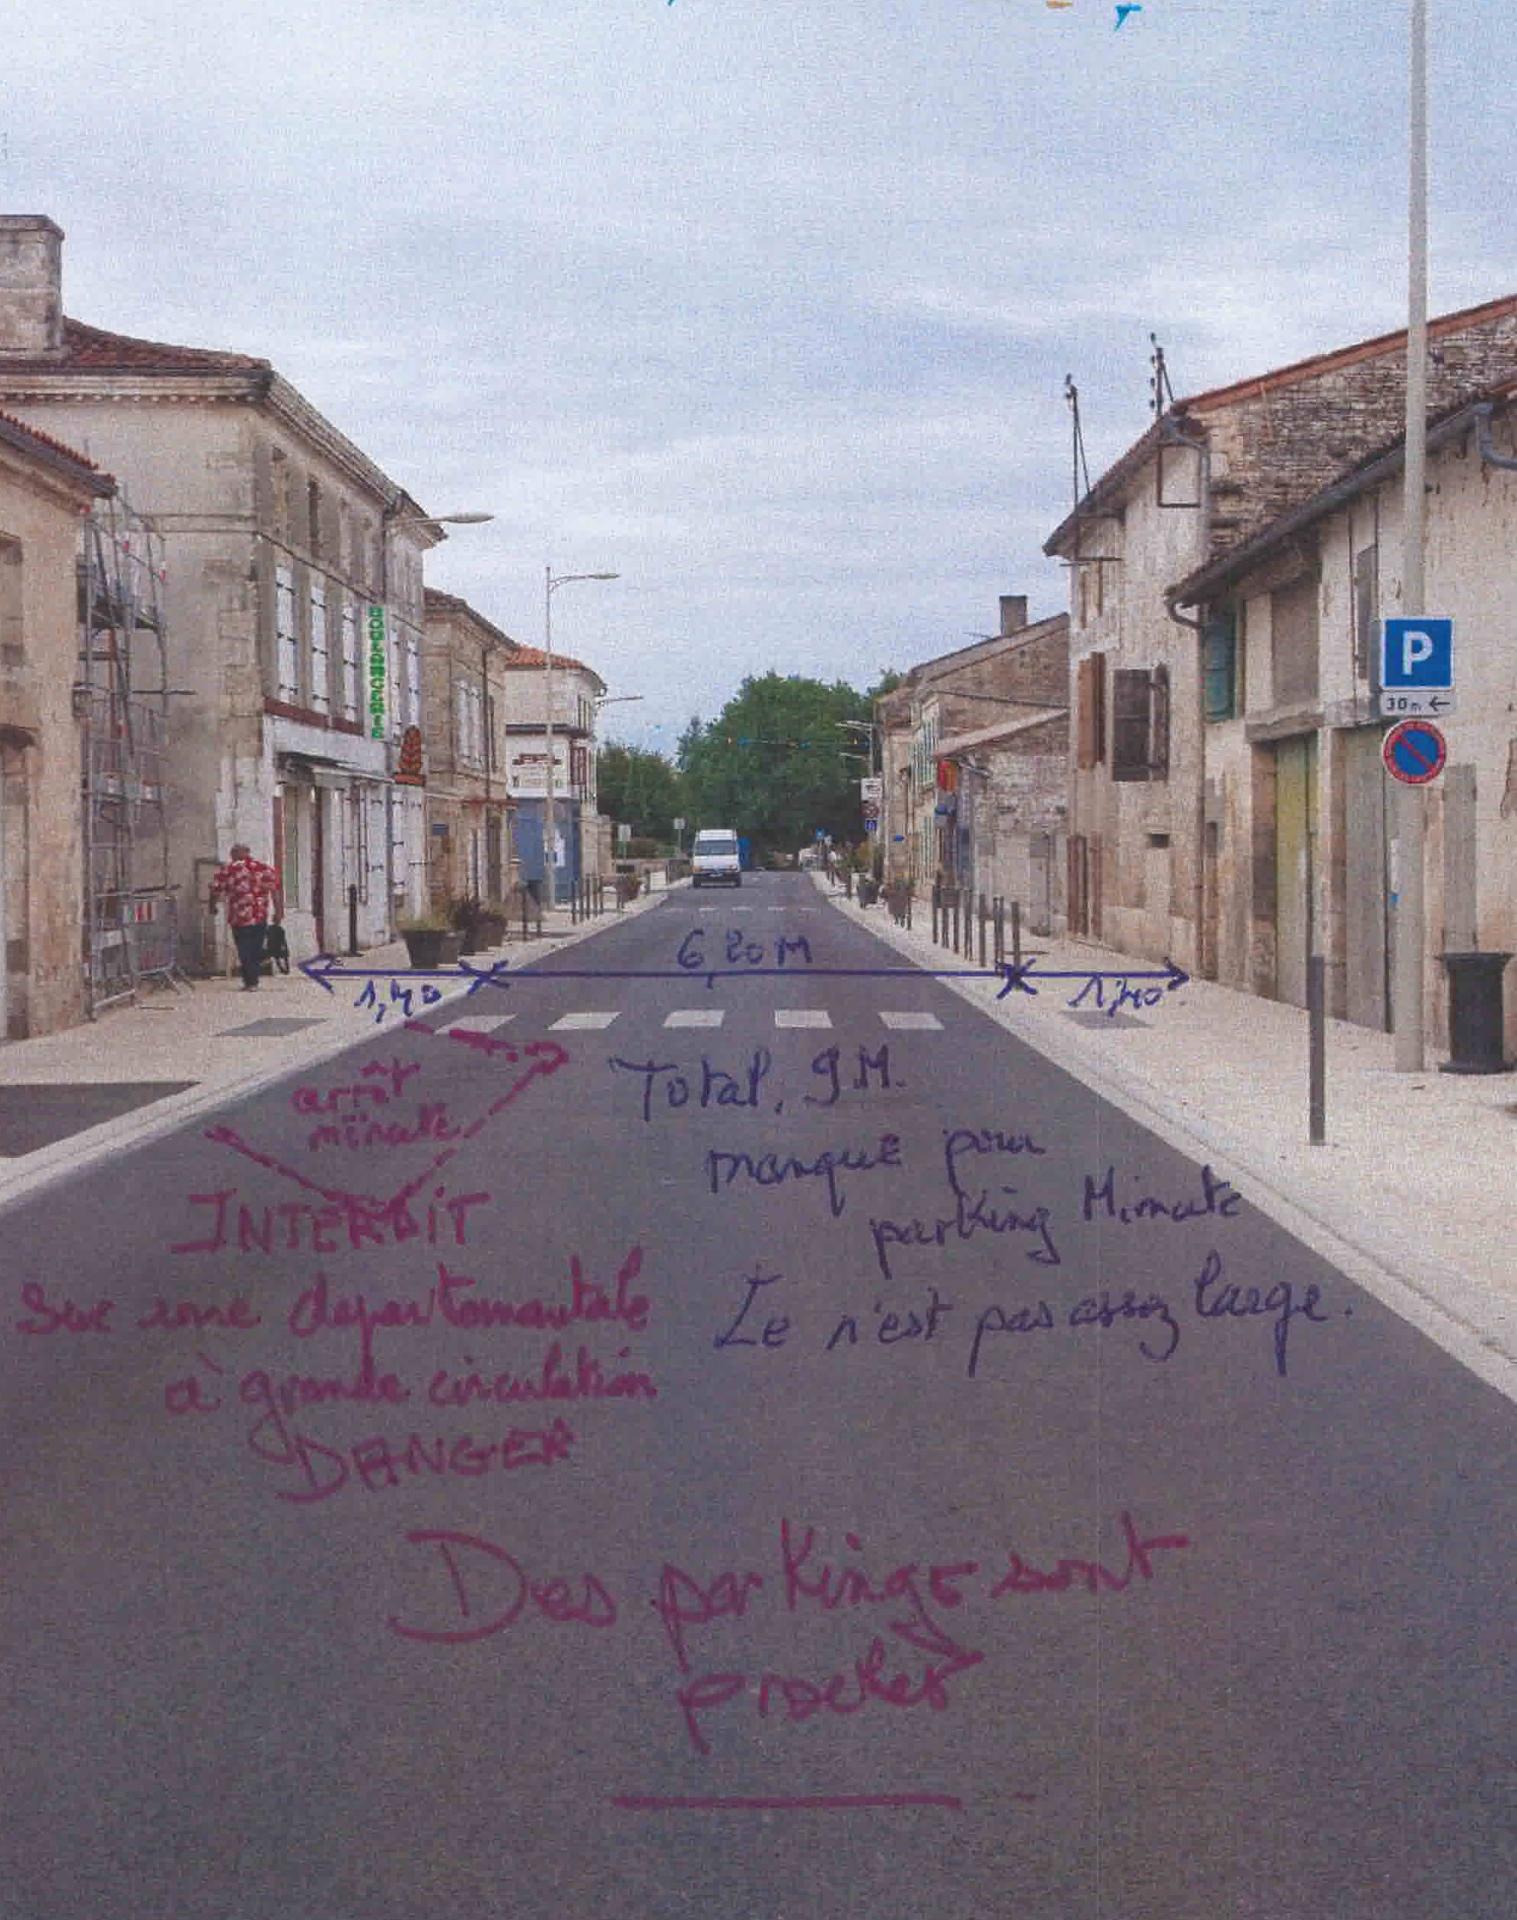 BOULANGERIE
P
30m ←
6,20 M
1,40
1,40
arrêt
minute
Total, 9 M.
manque pour
parking Minute
Le n'est pas assez large.
INTERDIT
Sur une departementale
à grande circulation
DANGER
Des parkings sont
proches